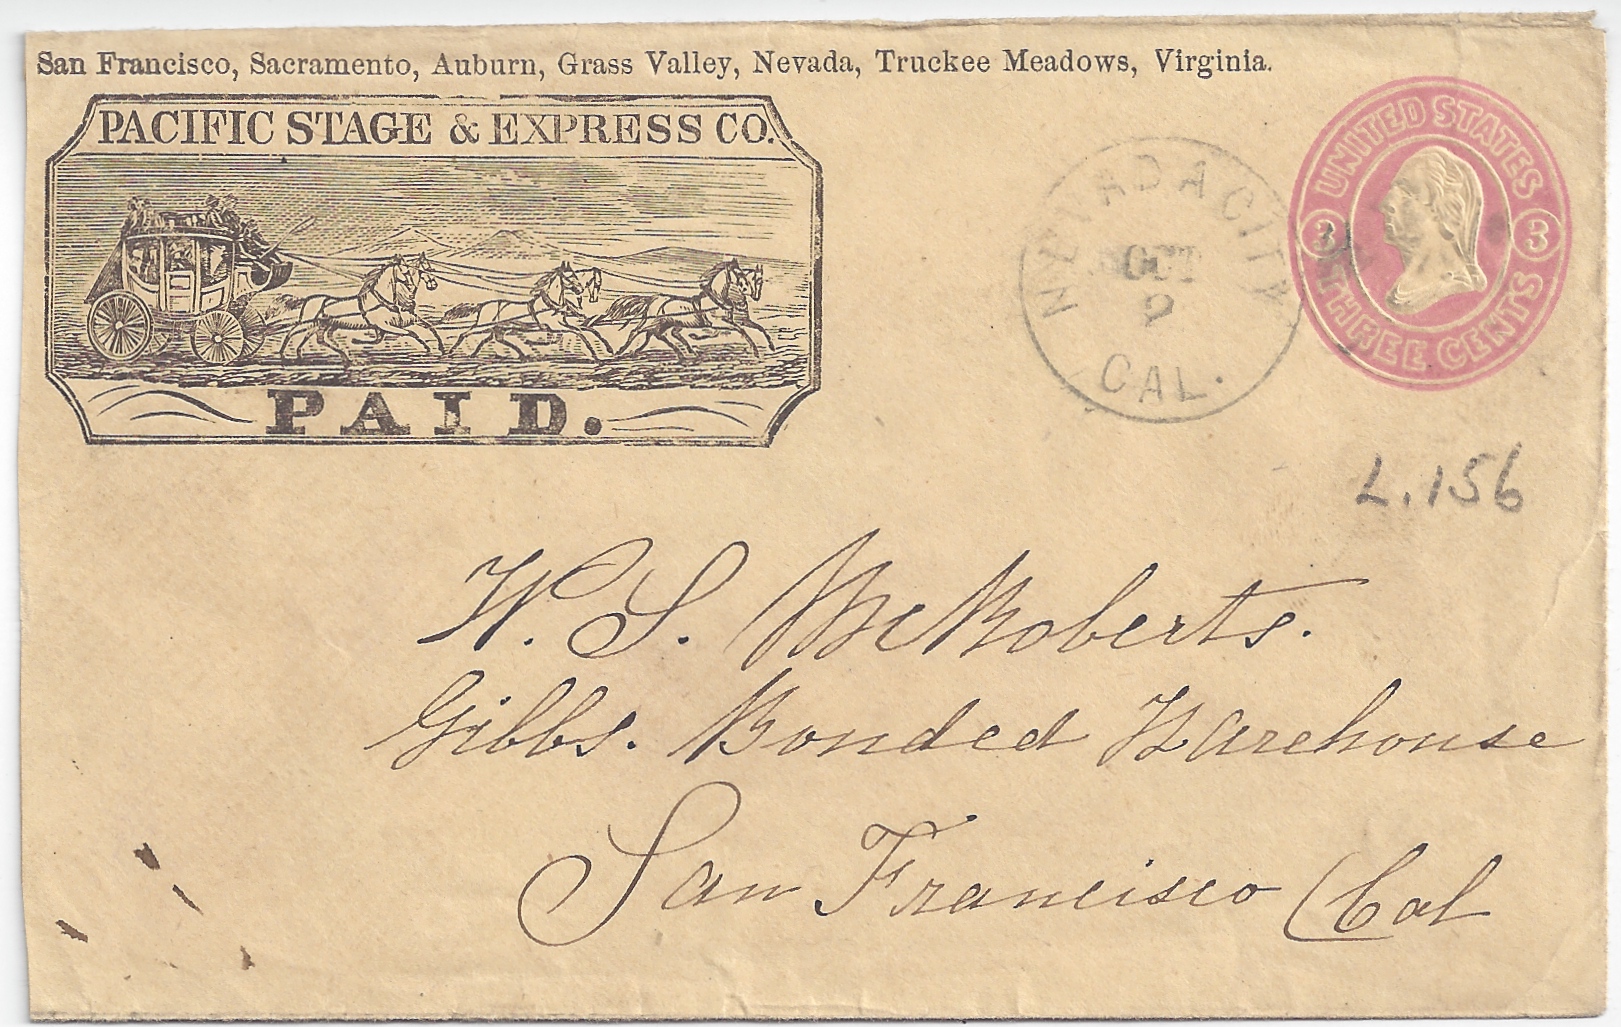 San Francisco, Sacramento, Auburn, Grass Valley, Nevada, Truckee Meadows, Virginia.
PACIFIC STAGE & EXPRESS CO.
PAID.
NEVADA CITY
OCT
9
CAL.
UNITED STATES
3 3
THREE CENTS
L.156
W. S. McRoberts.
Gibbs. Bonded Warehouse
San Francisco Cal